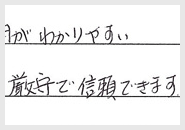 がわかりやすい
厳守で信頼できます